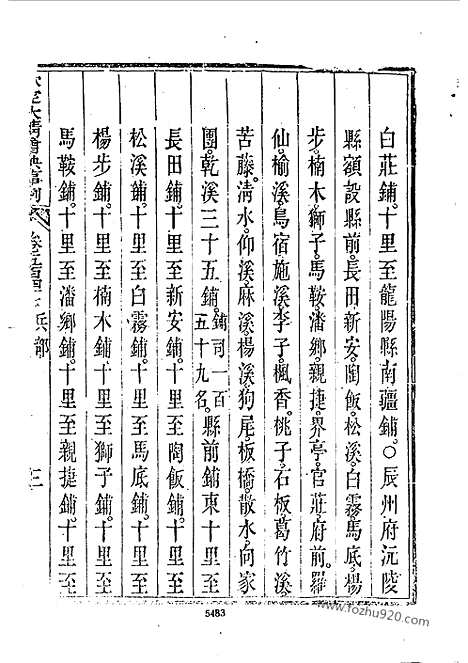 白莊鋪。十里至龍陽縣南疆鋪。○辰州府沅陵
縣額設縣前。長田。新安。陶飯。松溪。白霧。馬底。楊
步。楠木。獅子。馬鞍。潘鄉。親捷。界亭。官莊。府前。羅
仙。榆溪。烏宿。施溪。李子。楓香。桃子。石板。葛竹溪
苦藤。清水。仰溪。麻溪。楊溪。狗尾。板橋。散水。向家
團。乾溪三十五鋪。鋪司一百五十九名。縣前鋪東十里至
長田鋪。十里至新安鋪。十里至陶飯鋪。十里至
松溪鋪。十里至白霧鋪。十里至馬底鋪。十里至
楊步鋪。十里至楠木鋪。十里至獅子鋪。十里至
馬鞍鋪。十里至潘鄉鋪。十里至親捷鋪。十里至
欽定大清會典事例 兵部 三
5483
www.fozhu920.com